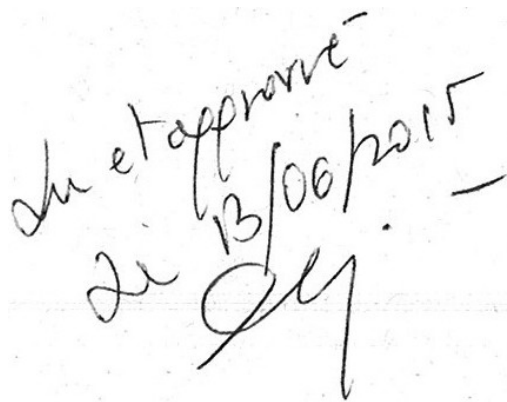 Lu et approuvé
Le 13/06/2015